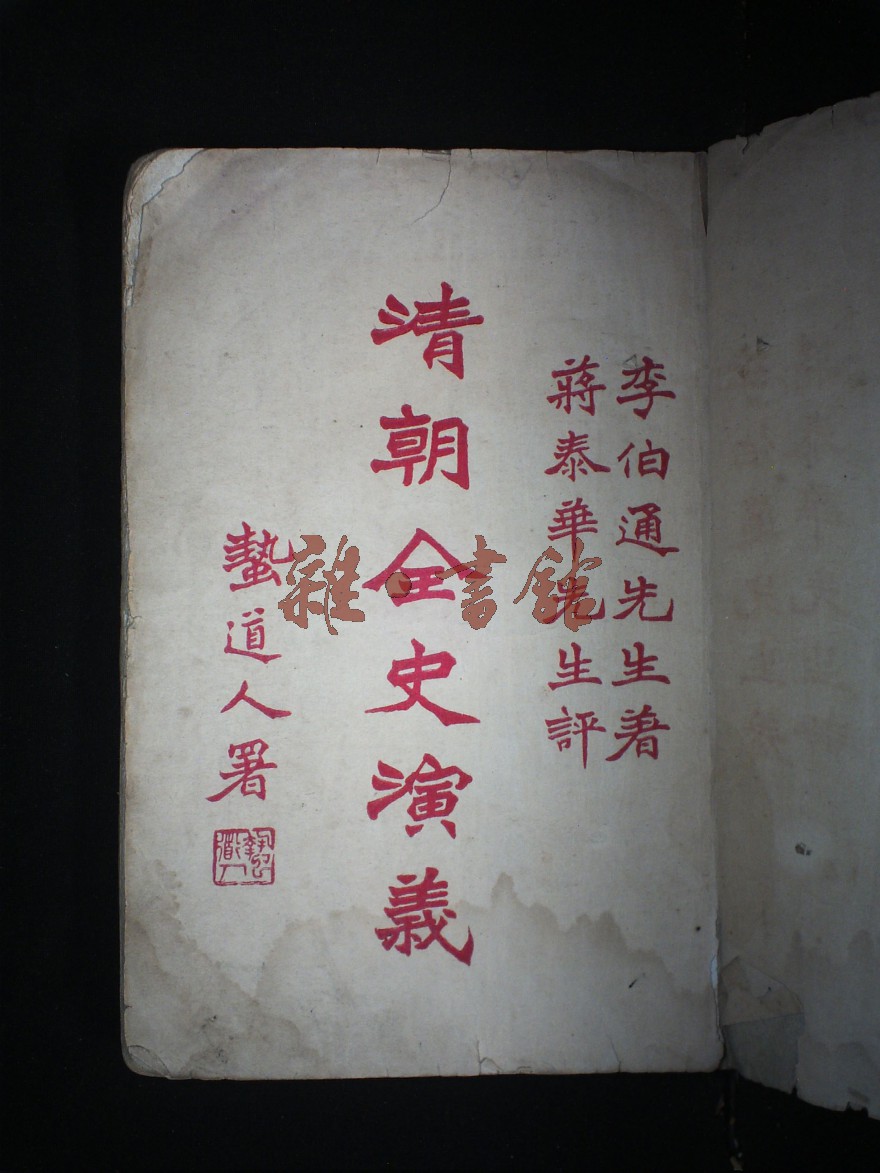 李伯通先生著
蔣泰華先生評
清朝全史演義
蟄道人署
蟄道人
雜·書館